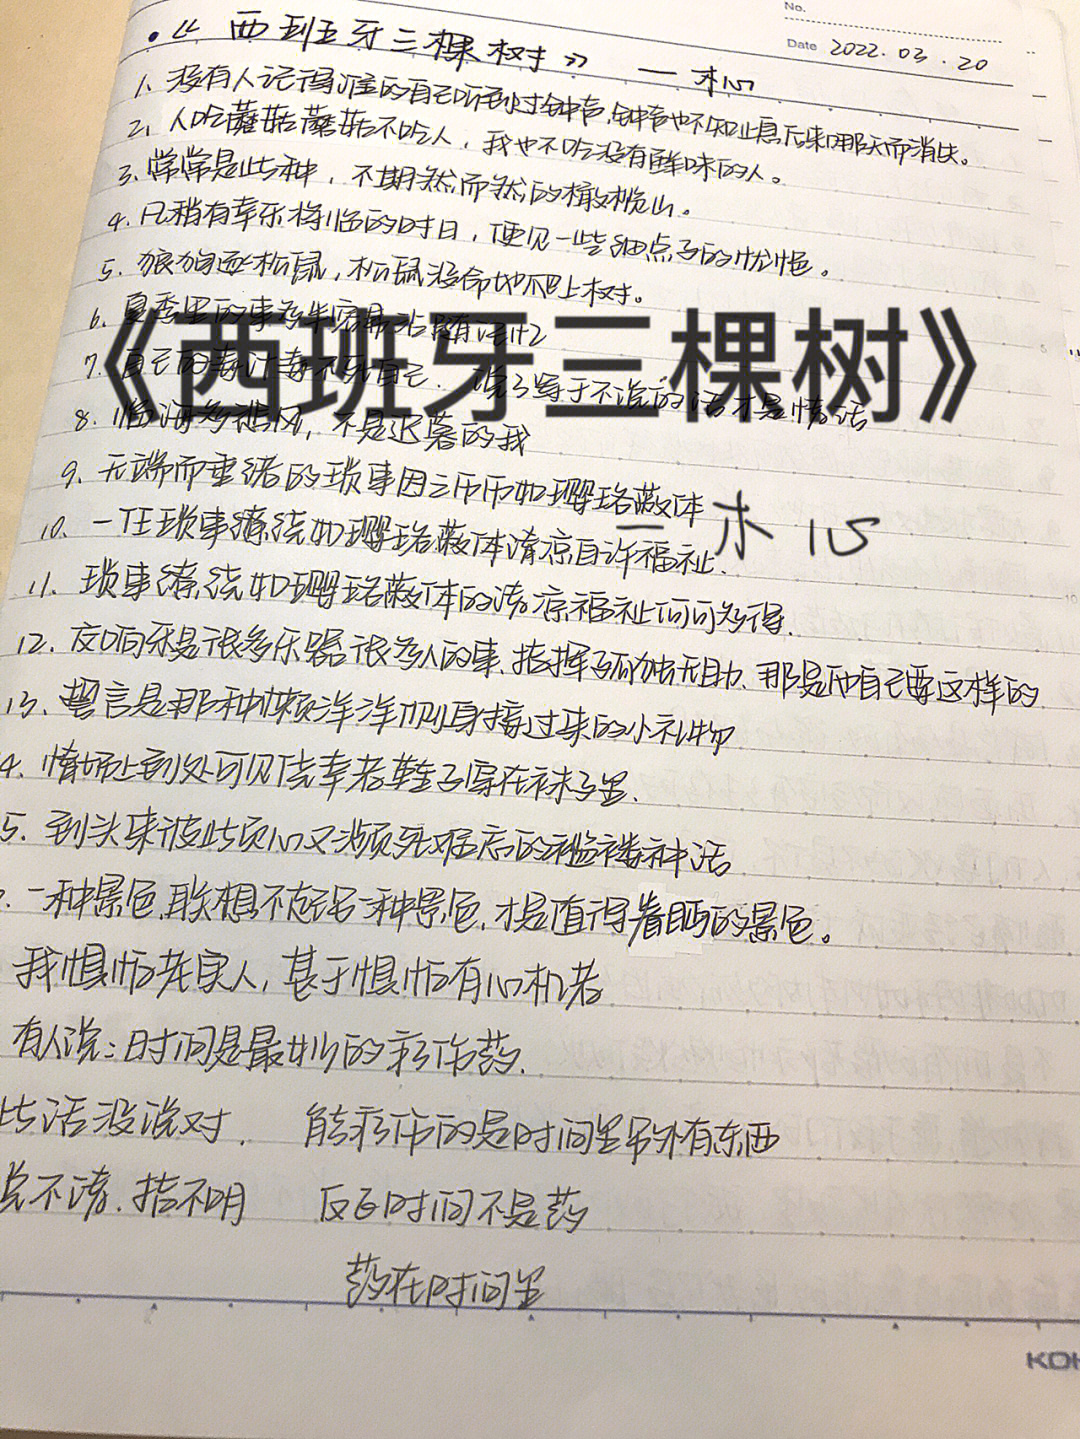 No.
Date 2022.03.20
•《西班牙三棵树》 —木心
1、没有人记得准的自己听到过钟声,钟声也不知止息后来哪天而消失。
2、人吃蘑菇蘑菇不吃人,我也不吃没有鲜味的人。
3、常常是此种,不期然而然的橄榄山。
4、凡稍有幸乐将临的时日,便见一些细点子的忧悒。
5、狼狗逐松鼠,松鼠没命地爬上树。
6、夏季里的事
《西班牙三棵树》
7、自己的毒汁毒不死自己. 说了等于不说的话才是情话
8、临海多悲风,不是迟暮的我
9、无端而重诺的琐事因之币币如璎珞蔽体
— 木心
10、一任琐事缭绕如璎珞蔽体清凉自许福祉.
11、琐事缭绕如璎珞蔽体的清凉福祉何可多得.
12、交响乐是很多乐器很多人的事、指挥孑孤独无助、那是他自己要这样的
13、誓言是那种懒洋洋侧身接过来的小礼物
4、情场上到处可见侥幸者鞋子穿在袜子里.
5、到头来彼此负心又濒死难忘的褴褛神话
一种景色,联想不起另一种景色,才是值得眷眄的景色。
我惧怕老实人,甚于惧怕有心机者
有人说:时间是最妙的疗伤药.
此话没说对. 能疗伤的是时间里另外有东西
说不清.指不明 反正时间不是药
药在时间里